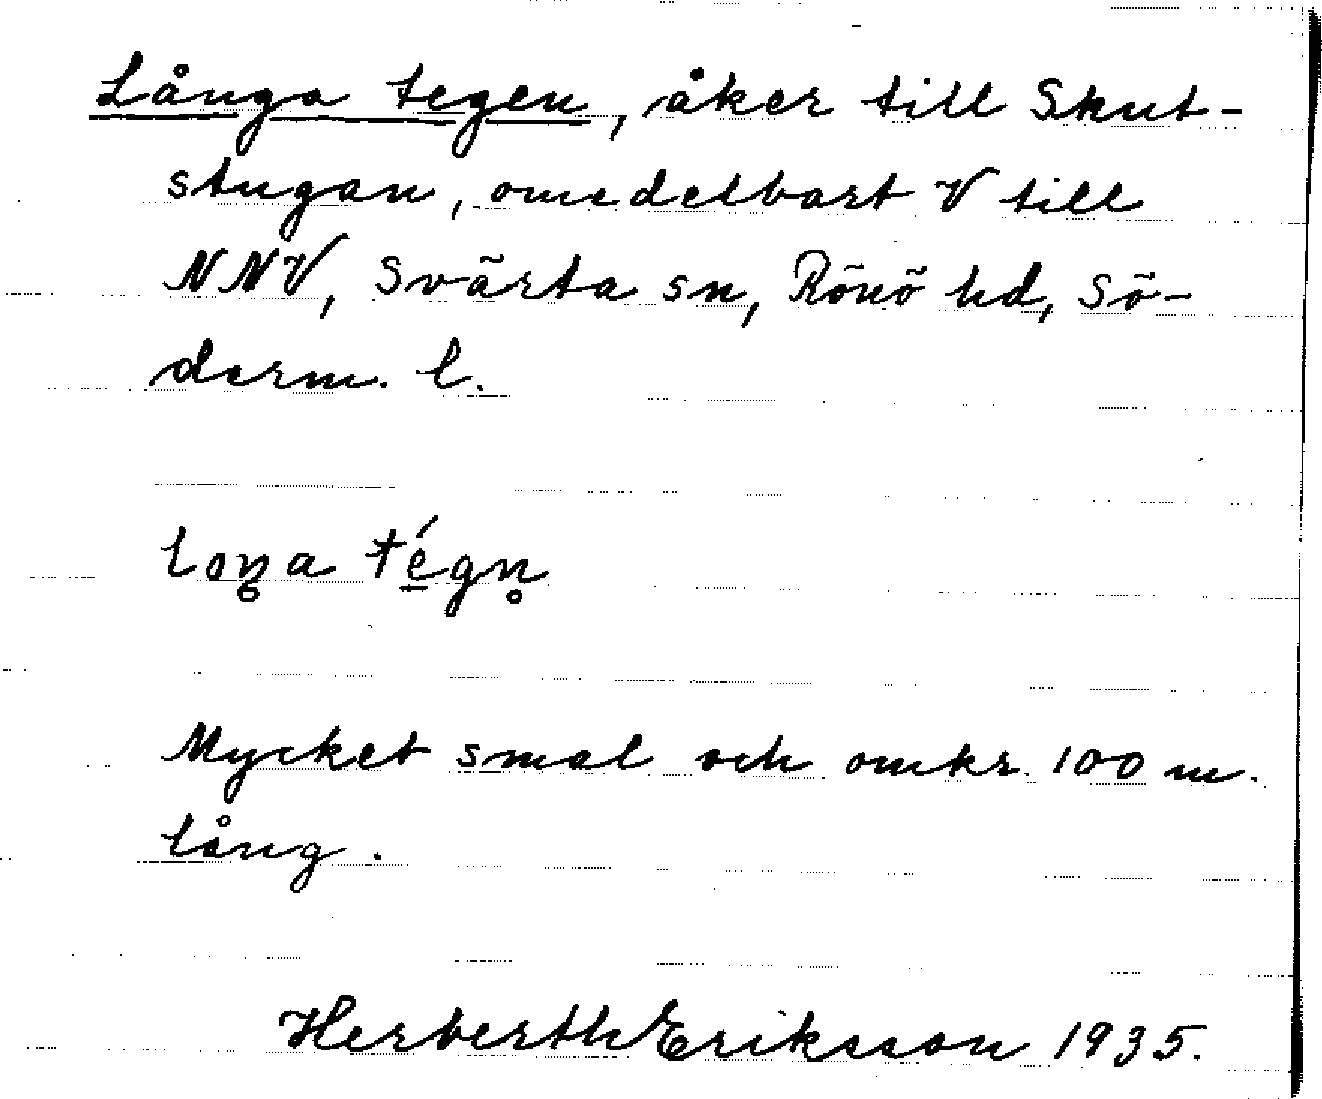 Långa tegen, åker till Skut-
stugan, omedelbart V till
NNV, Svärta sn, Rönö hd, Sö-
derm. l.
loŋ̥a tég̱n̥
Mycket smal och omkr. 100 m.
lång.
Herberth Eriksson 1935.